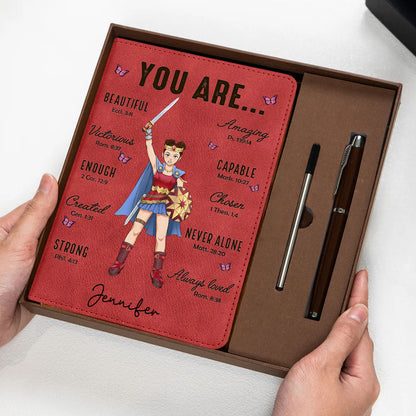 YOU ARE...
BEAUTIFUL
Eccl. 3:11
Amazing
Ps. 139:14
Victorious
Rom. 8:37
CAPABLE
Mark. 10:27
ENOUGH
2 Cor. 12:9
Chosen
1 Thes. 1:4
Created
Gen. 1:31
NEVER ALONE
Matt. 28:20
STRONG
Phil. 4:13
Always loved
Rom. 8:38
Jennifer